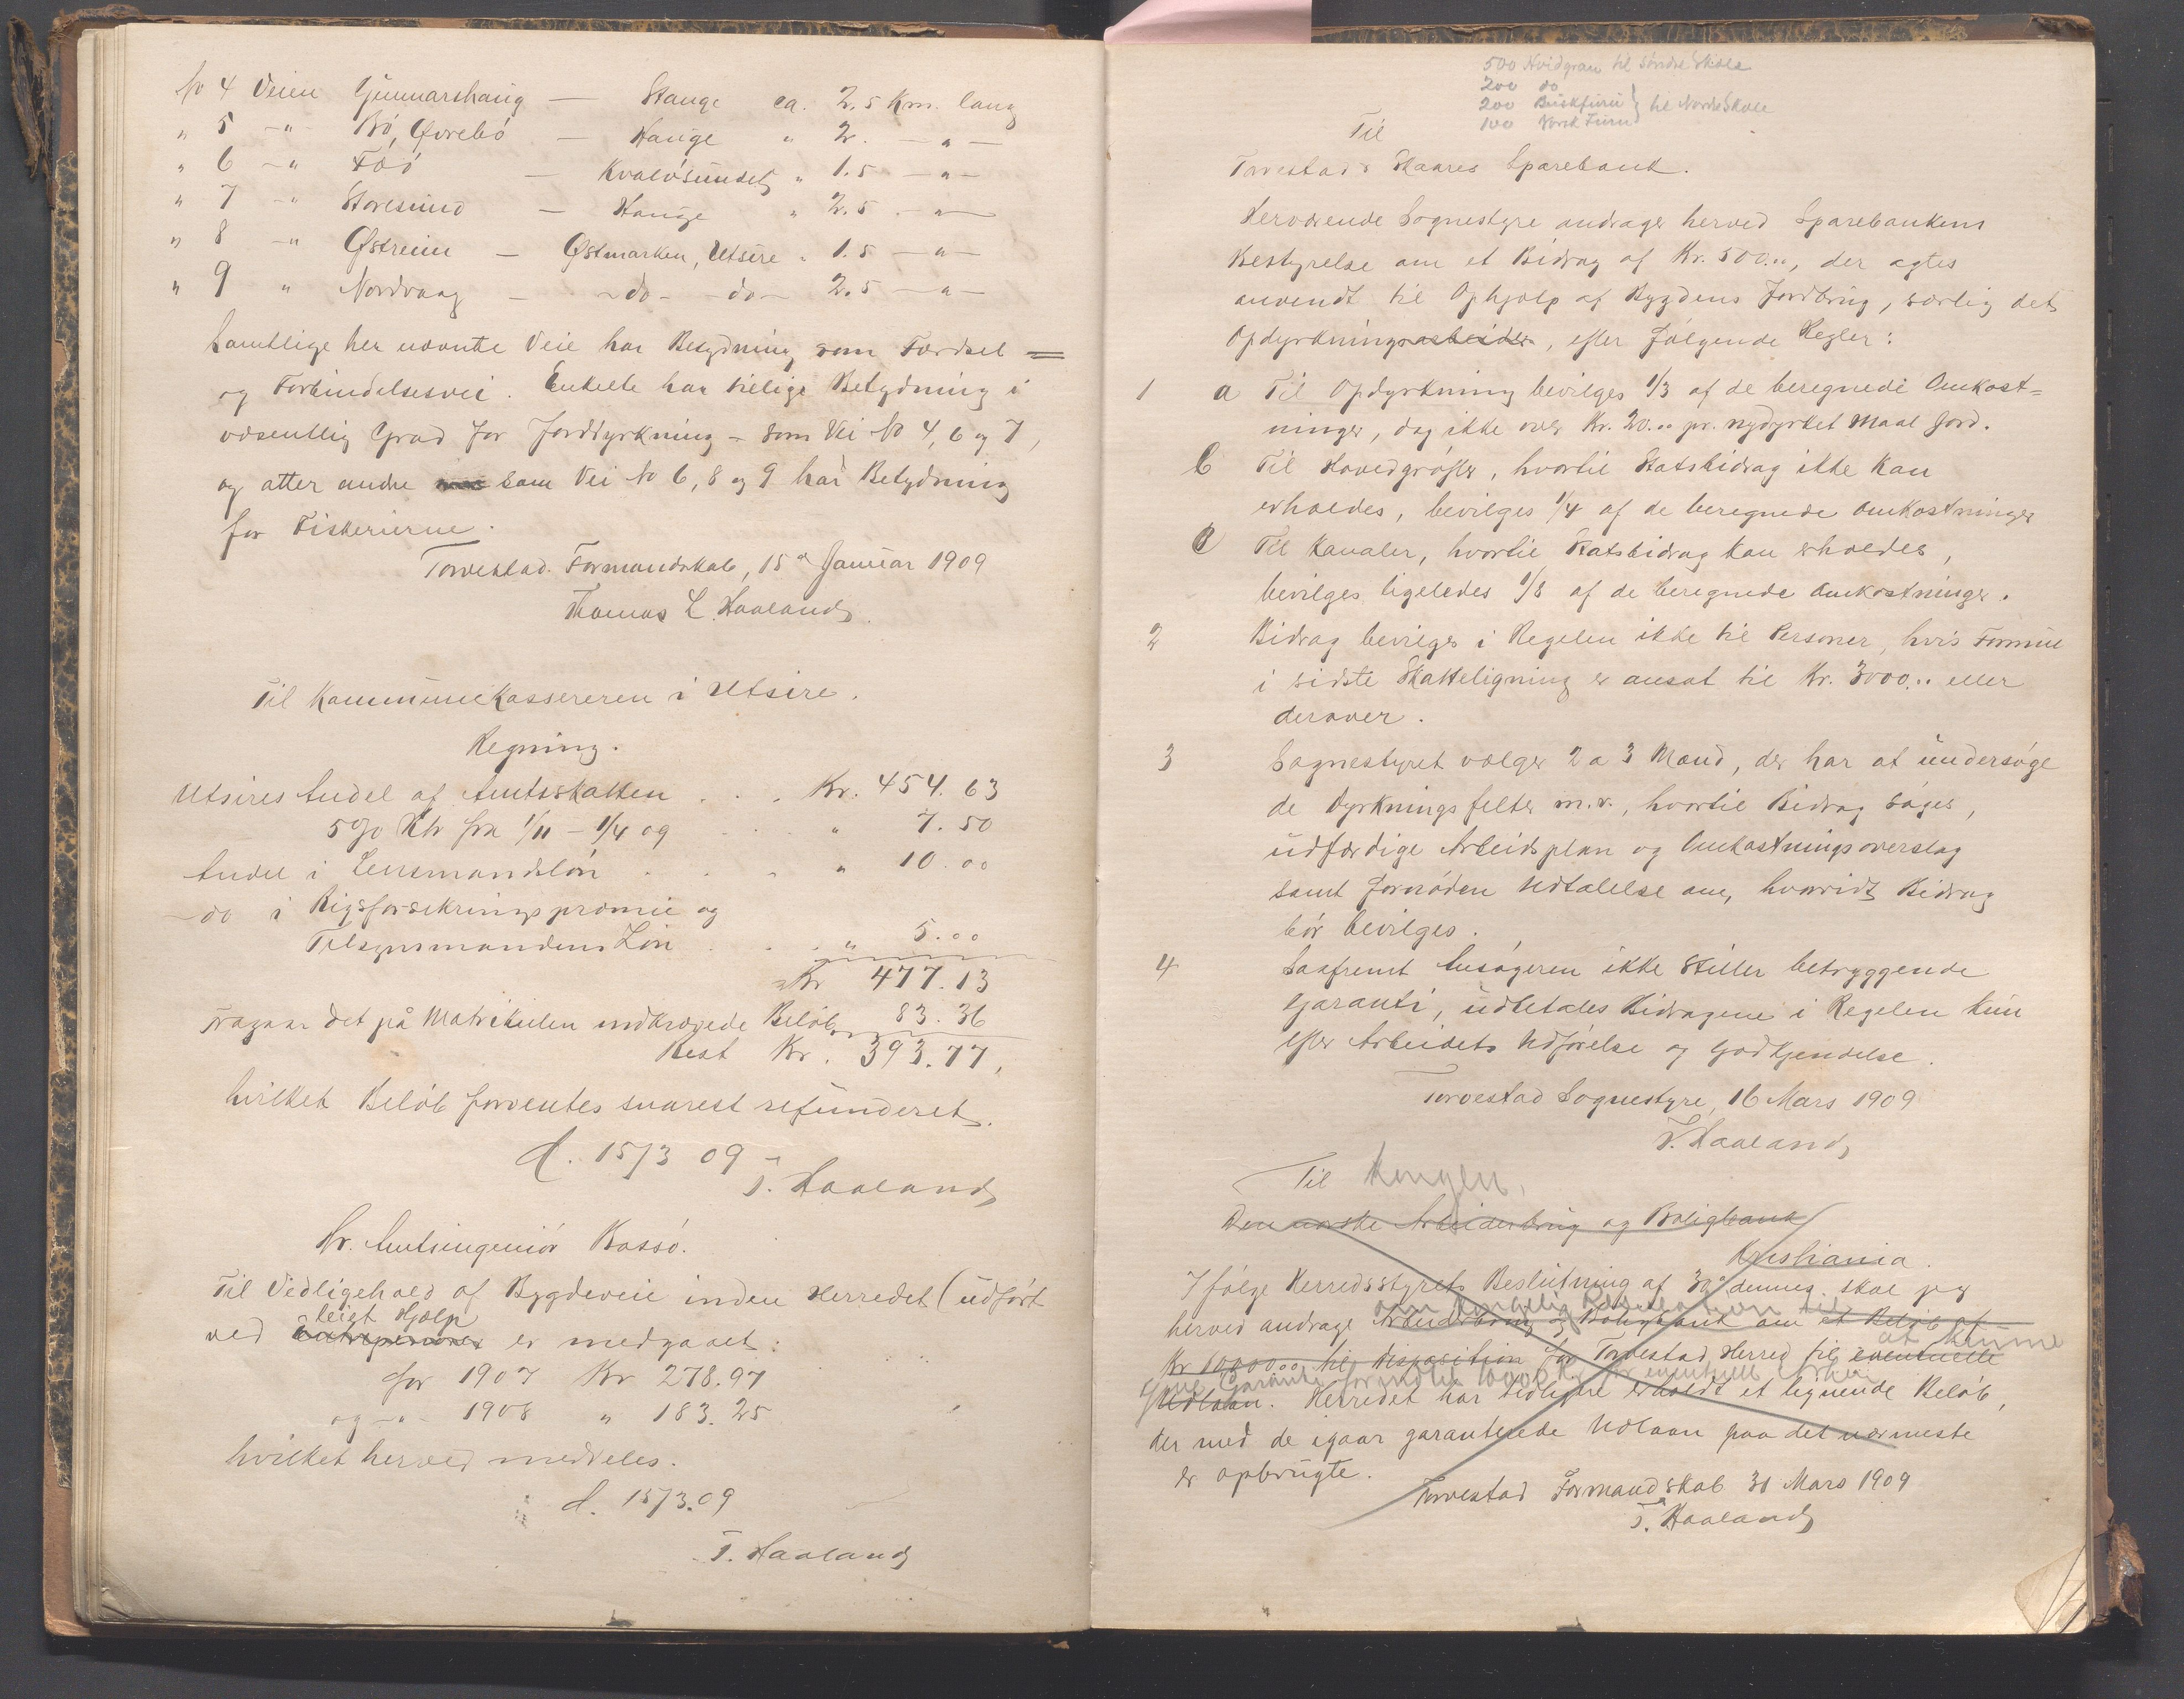 No 4 Veien Gunnarshaug — Stange ca. 2.5 Km. lang
" 5 -"- Bö, Øvrebö — Hauge " 2. -"-
" 6 -"- Föö — Kvalösundet " 1.5 -"-
" 7 -"- Storesund — Hauge " 2.5 -"-
" 8 -"- Østreim — Østmarken, Utsire " 1.5 -"-
" 9 " Nordvaag — -do- -do- 2.5 -"-
Samtlige her nævnte Veie har Betydning som Færdsel=
og Forbindelsesvei. Enkelte har tillige Betydning i
væsentlig Grad for Jorddyrkning - som Vei No 4, 6 og 7,
og atter andre som Vei No 6, 8 og 9 har Betydning
for Fiskerierne.
Torvestad Formandskab, 15de Januar 1909
Thomas L. Haaland
Til Kommunekassereren i Utsire.
Regning.
Utsires Andel af Amtsskatten . . . Kr. 454.63
5% Rtr fra 1/11 - 1/4 09 . . . " 7.50
Andel i Lensmandslön . . . " 10.00
-do i Rigsforsikringspræmie og
Tilsynsmandens Lön . . . " 5.00
Kr 477.13
Fragaar det på Matrikulen indkrævede Belöb 83.36
Rest Kr. 393.77,
hvilket Belöb forventes snarest refunderet.
d. 15/3 09
T. Haaland
Hr. Amtsingeniör Bassö.
Til Vedligehold af Bygdeveie inden Herredet (udfört
leiet Hjælp
ved Entrepenører er medgaaet:
for 1907 Kr 278.97
og -"- 1908 " 183.25
hvilket herved meddeles.
d. 15/3.09
T. Haaland
500 Hvidgran til Söndre Skole
200 do
200 Buskfuru } til Nordre Skole
100 Norsk Furu
Til
Torvestad & Skaares Sparebank.
Herværende Sognestyre andrager herved Sparebankens
Bestyrelse om et Bidrag af Kr. 500.00, der agtes
anvendt til Ophjælp af Bygdens Jordbrug, særlig det
Opdyrkningsarbeider, efter følgende Regler:
1 a Til Opdyrkning bevilges 1/3 af de beregnede Omkost=
ninger, dog ikke over Kr. 20.00 pr. nydyrket Maal Jord.
b Til Hovedgröfter, hvortil Statsbidrag ikke kan
erholdes, bevilges 1/4 af de beregnede Omkostninger
c Til Kanaler, hvortil Statsbidrag kan erholdes,
bevilges ligeledes 1/8 af de beregnede Omkostninger.
2 Bidrag bevilges i Regelen ikke til Personer, hvis Formue
i sidste Skatteligning er ansat til Kr. 3000.00 eller
derover.
3 Sognestyret vælger 2 a 3 Mænd, der har at undersöge
de Dyrkningsfelter m.v., hvortil Bidrag söges,
udfærdige Arbeidsplan og Omkostningsoverslag
samt fornöden Udtalelse om, hvorvidt Bidrag
bör bevilges.
4 Saafremt Ansögeren ikke stiller betryggende
Garanti, udbetales Bidragene i Regelen kun
efter Arbeidets Udförelse og Godkjendelse.
Torvestad Sognestyre, 16 Mars 1909
T. Haaland
Til Kongen,
Den norske Arbeiderbrug og Boligbank
Kristiania.
Ifölge Herredsstyrets Beslutning af 30te dennes skal jeg
om Kongelig Resolution til
herved andrage Arbeiderbrug og Boligbank om et Belöb af
at kunne
Kr 10000.00 til Disposition for Torvestad Herred til eventuelle
give Garanti for indtil 10000 Kr for eventuelle
Udlaan. Herredet har tidligere erholdt et lignende Belöb,
der med de igaar garanterede Udlaan paa det nærmeste
er opbrugte.
Torvestad Formandskab 31 Mars 1909
T. Haaland